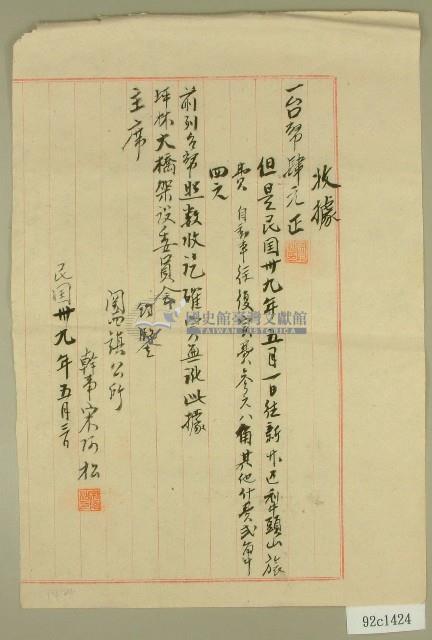 收據
一台幣肆元正
但是民國卅九年五月一日往新竹迁犁頭山旅
費 自動車往復 費參元八角其他什費弍角
四元
前列台幣照數收訖確實無訛此據
坪林大橋架設委員會
主席 鈞鑒
關西鎮公所
幹事宋阿松
民國卅九年五月三日
國史館臺灣文獻館
TAIWAN HISTORICA
92c1424